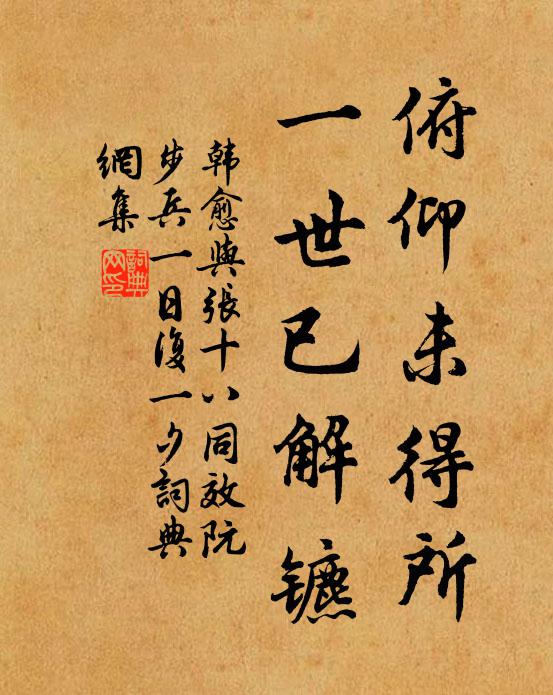 俯仰未得所
一世已解镳
韩愈與張十八同效阮
步兵一日復一夕詞典
網集
詞典
网印